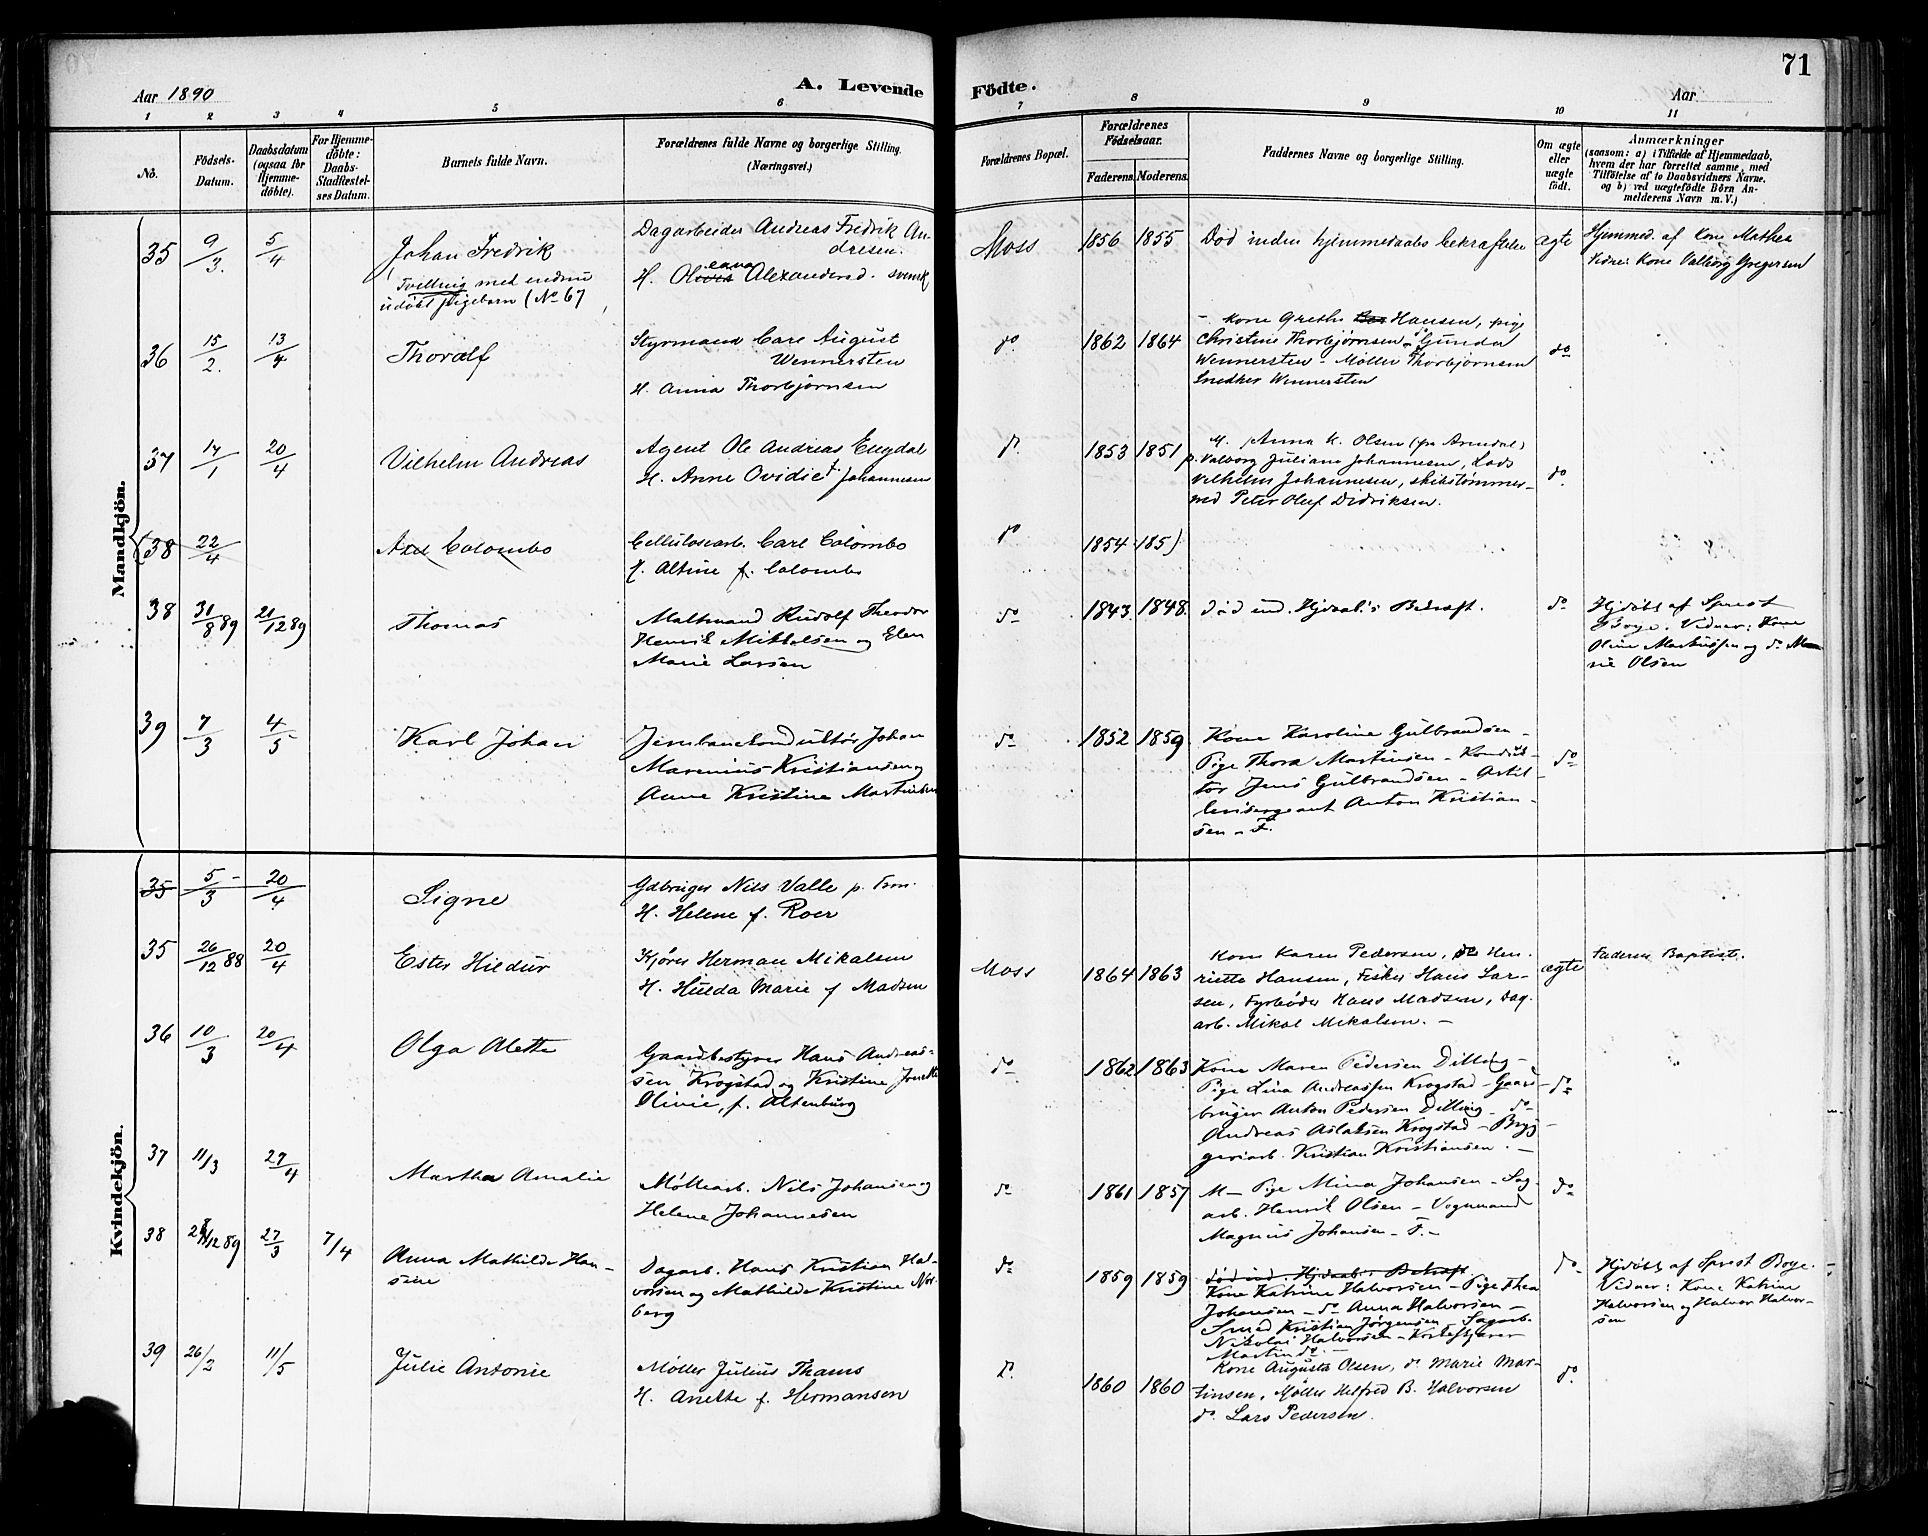 71
Aar 1890
A. Levende
Födte.
Aar
1 2 3 4 5 6 7 8 9 10 11
No.
Födsels-
Datum.
Daabsdatum
(ogsaa for
Hjemme-
döbte).
For Hjemme-
döbte:
Daabs-
Stadfæstel-
ses Datum.
Barnets fulde Navn.
Forældrenes fulde Navne og borgerlige Stilling.
(Næringsvei.)
Forældrenes Bopæl.
Forældrenes
Födselsaar.
Faderens. Moderens.
Faddernes Navne og borgerlige Stilling.
Om ægte
eller
uægte
födt.
Anmærkninger
(saasom: a) i Tilfælde af Hjemmedaab,
hvem der har forrettet samme, med
Tilföielse af to Daabsvidners Navne,
og b) ved uægtefödte Börn An-
melderens Navn m. V.)
Mandkjön.
35 9/3. 5/4
Johan Fredrik
Tvilling med endnu
udøbt pigebarn (No 67
Dagarbeider Andreas Fredrik An-
dresen.
H. Oleana Alexandersd. svensk
Moss 1856 1855
Død inden hjemmedaabs bekræftelse
ægte
Hjemmed. af Kone Mathea
Vidne: Kone Valborg Gregersen
36 15/2. 13/4
Thoralf
Styrmand Carl August
Wennersten
H. Anna Thorbjørnsen
do 1862 1864
- Kone Grethe Hansen, pige
Christine Thorbjørnsen - do Gunda
Wennersten - Møller Thorbjørnsen
Snedker Wennersten
do
37 14/1 20/4
Vilhelm Andreas
Agent Ole Andreas Engdal
H. Anne Ovidie f. Johannesen
do 1853 1851
M. Anna K. Olsen (fra Arendal)
p. Valborg Juliane Johannesen, Lods
Vilhelm Johannesen, skibstømmer-
md Peter Oluf Didriksen.
do
38 22/4
Axel Colombo
Cellulosearb. Carl Colombo
H. Altine f. Colombo
do 1854 185
38 31/8 89 21/12 89
Thomas
Maltmand Rudolf Theodor
Henrik Mikkelsen og Elen
Marie Larsen
do 1843 1848
død ind. Hjdaab's Bekræft.
do
Hjdøbt af Sprest
Boye. Vidner: Kone
Oline Markussen og do Ma-
rie Olsen
39 7/3 4/5
Karl Johan
Jernbanekonduktör Johan
Marenius Kristiansen og
Anne Kristine Martinsen
do 1852 1859
Kone Karoline Gulbrandsen -
Pige Thora Martinsen - Konduk-
tör Jens Gulbrandsen - Artil-
lerisergeant Anton Kristian-
sen - F.
do
Kvindekjön.
35 5/3 20/4
Signe
Gdbruger Nils Valle p. Tron.
H. Helene f. Roer
35 26/12 88 20/4
Ester Hildur
Kjører Herman Mikalsen
H. Hulda Marie f Madsen
Moss 1864 1863
Kone Karen Pedersen, do Hen-
riette Hansen, Fisker Hans Lar-
sen, Fyrbøder Hans Madsen, Dag-
arb. Mikal Mikalsen. -
ægte
Faderen Baptist.
36 10/3 20/4
Olga Alette
Gaardbestyrer Hans Andreas-
sen Krogstad og Kristine
Olivie, f. Altenburg
do 1862 1863
Kone Maren Pedersen Dilling -
Pige Lina Andreassen Krogstad - Gaard-
bruger Anton Pedersen Dilling - do
Andreas Aslaksen Krogstad - Bryg-
geriarb. Kristian Kristiansen. -
do
37 11/3 27/4
Martha Amalie
Møllearb. Nils Johansen og
Helene Johannesen
do 1861 1857
M - Pige Mina Johansen - Sag-
arb. Henrik Olsen - Vognmand
Magnus Johansen - F. -
do
38 28/12 89 27/3 7/4
Anna Mathilde Han-
sine
Dagarb. Hans Kristian Hal-
vorsen og Mathilde Kristine Nor-
berg
do 1859 1859
død ind. Hjdaab's Bekræft
Kone Katrine Halvorsen - Pige Thea
Johansen - do Anna Halvorsen -
Smed Kristian Jörgensen - Sagarb.
Nikolai Halvorsen -
Martin do -
do
Hjdøbt af Sprest Boye.
Vidner: Kone Katrine
Halvorsen og Halvor Halvor-
sen
39 26/2 11/5
Julie Antonie
Møller Julius Thams
H. Anette f. Hermansen
do 1860 1860
Kone Augusta Olsen, do Marie Mar-
tinsen, Møller Helfred B. Halvorsen
do Lars Pedersen.
do